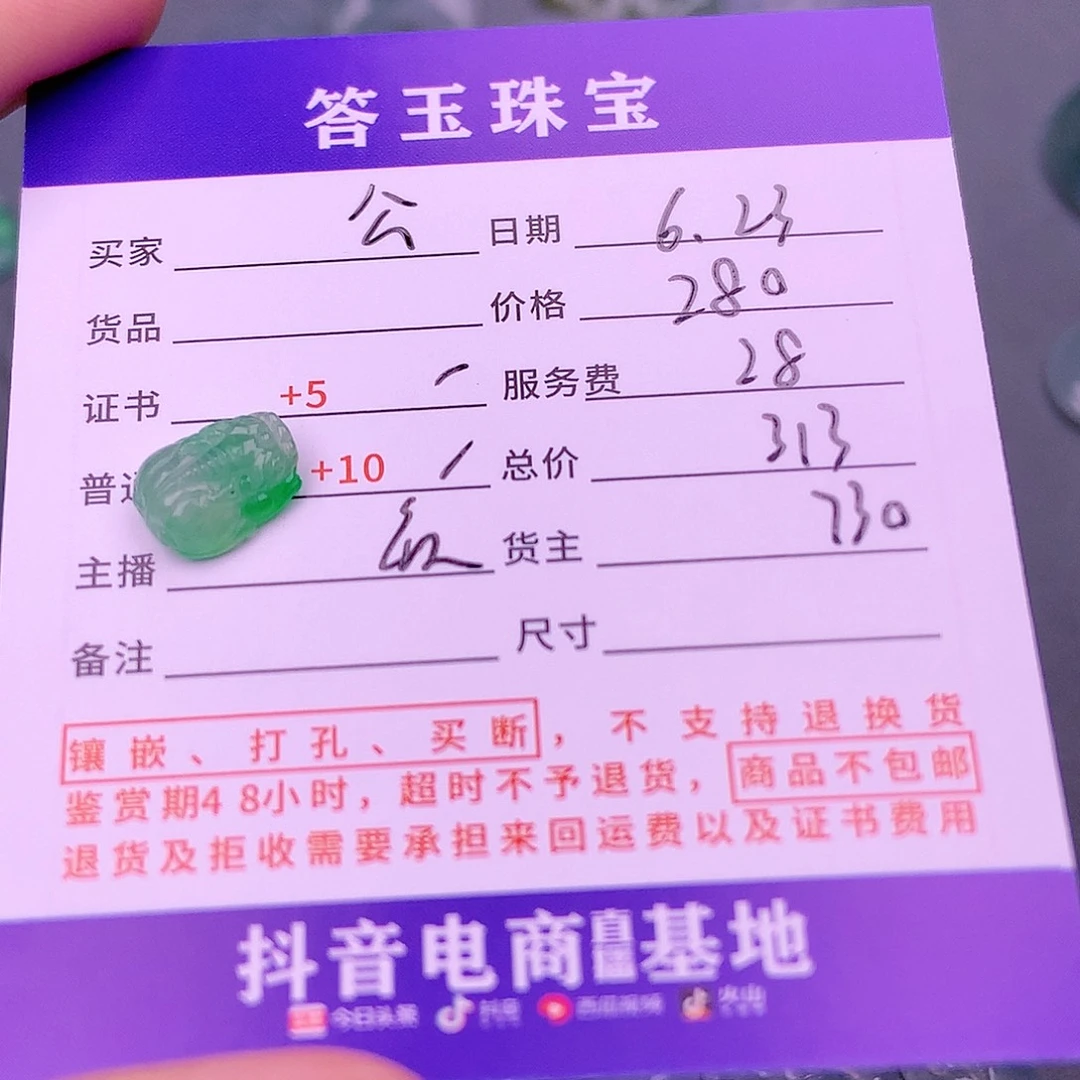 答玉珠宝
买家 公 日期 6.23
货品 价格 280
证书 +5 服务费 28
普 +10 总价 313
主播 货主 730
备注 尺寸
镶嵌、打孔、买断，不支持退换货
鉴赏期48小时，超时不予退货，商品不包邮
退货及拒收需要承担来回运费以及证书费用
抖音电商直播基地
今日头条 抖音 西瓜视频 火山